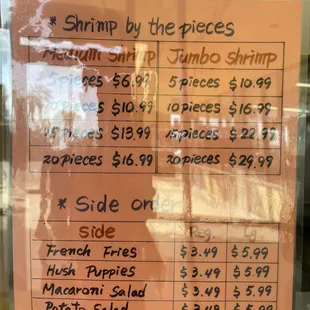 * Shrimp by the pieces
Medium Shrimp Jumbo Shrimp
5 pieces $6.99 5 pieces $10.99
10 pieces $10.99 10 pieces $16.99
15 pieces $13.99 15 pieces $22.99
20 pieces $16.99 20 pieces $29.99
* Side order
Side Reg. Lg.
French Fries $3.49 $5.99
Hush Puppies $3.49 $5.99
Macaroni Salad $3.49 $5.99
Potato Salad $3.49 $5.99